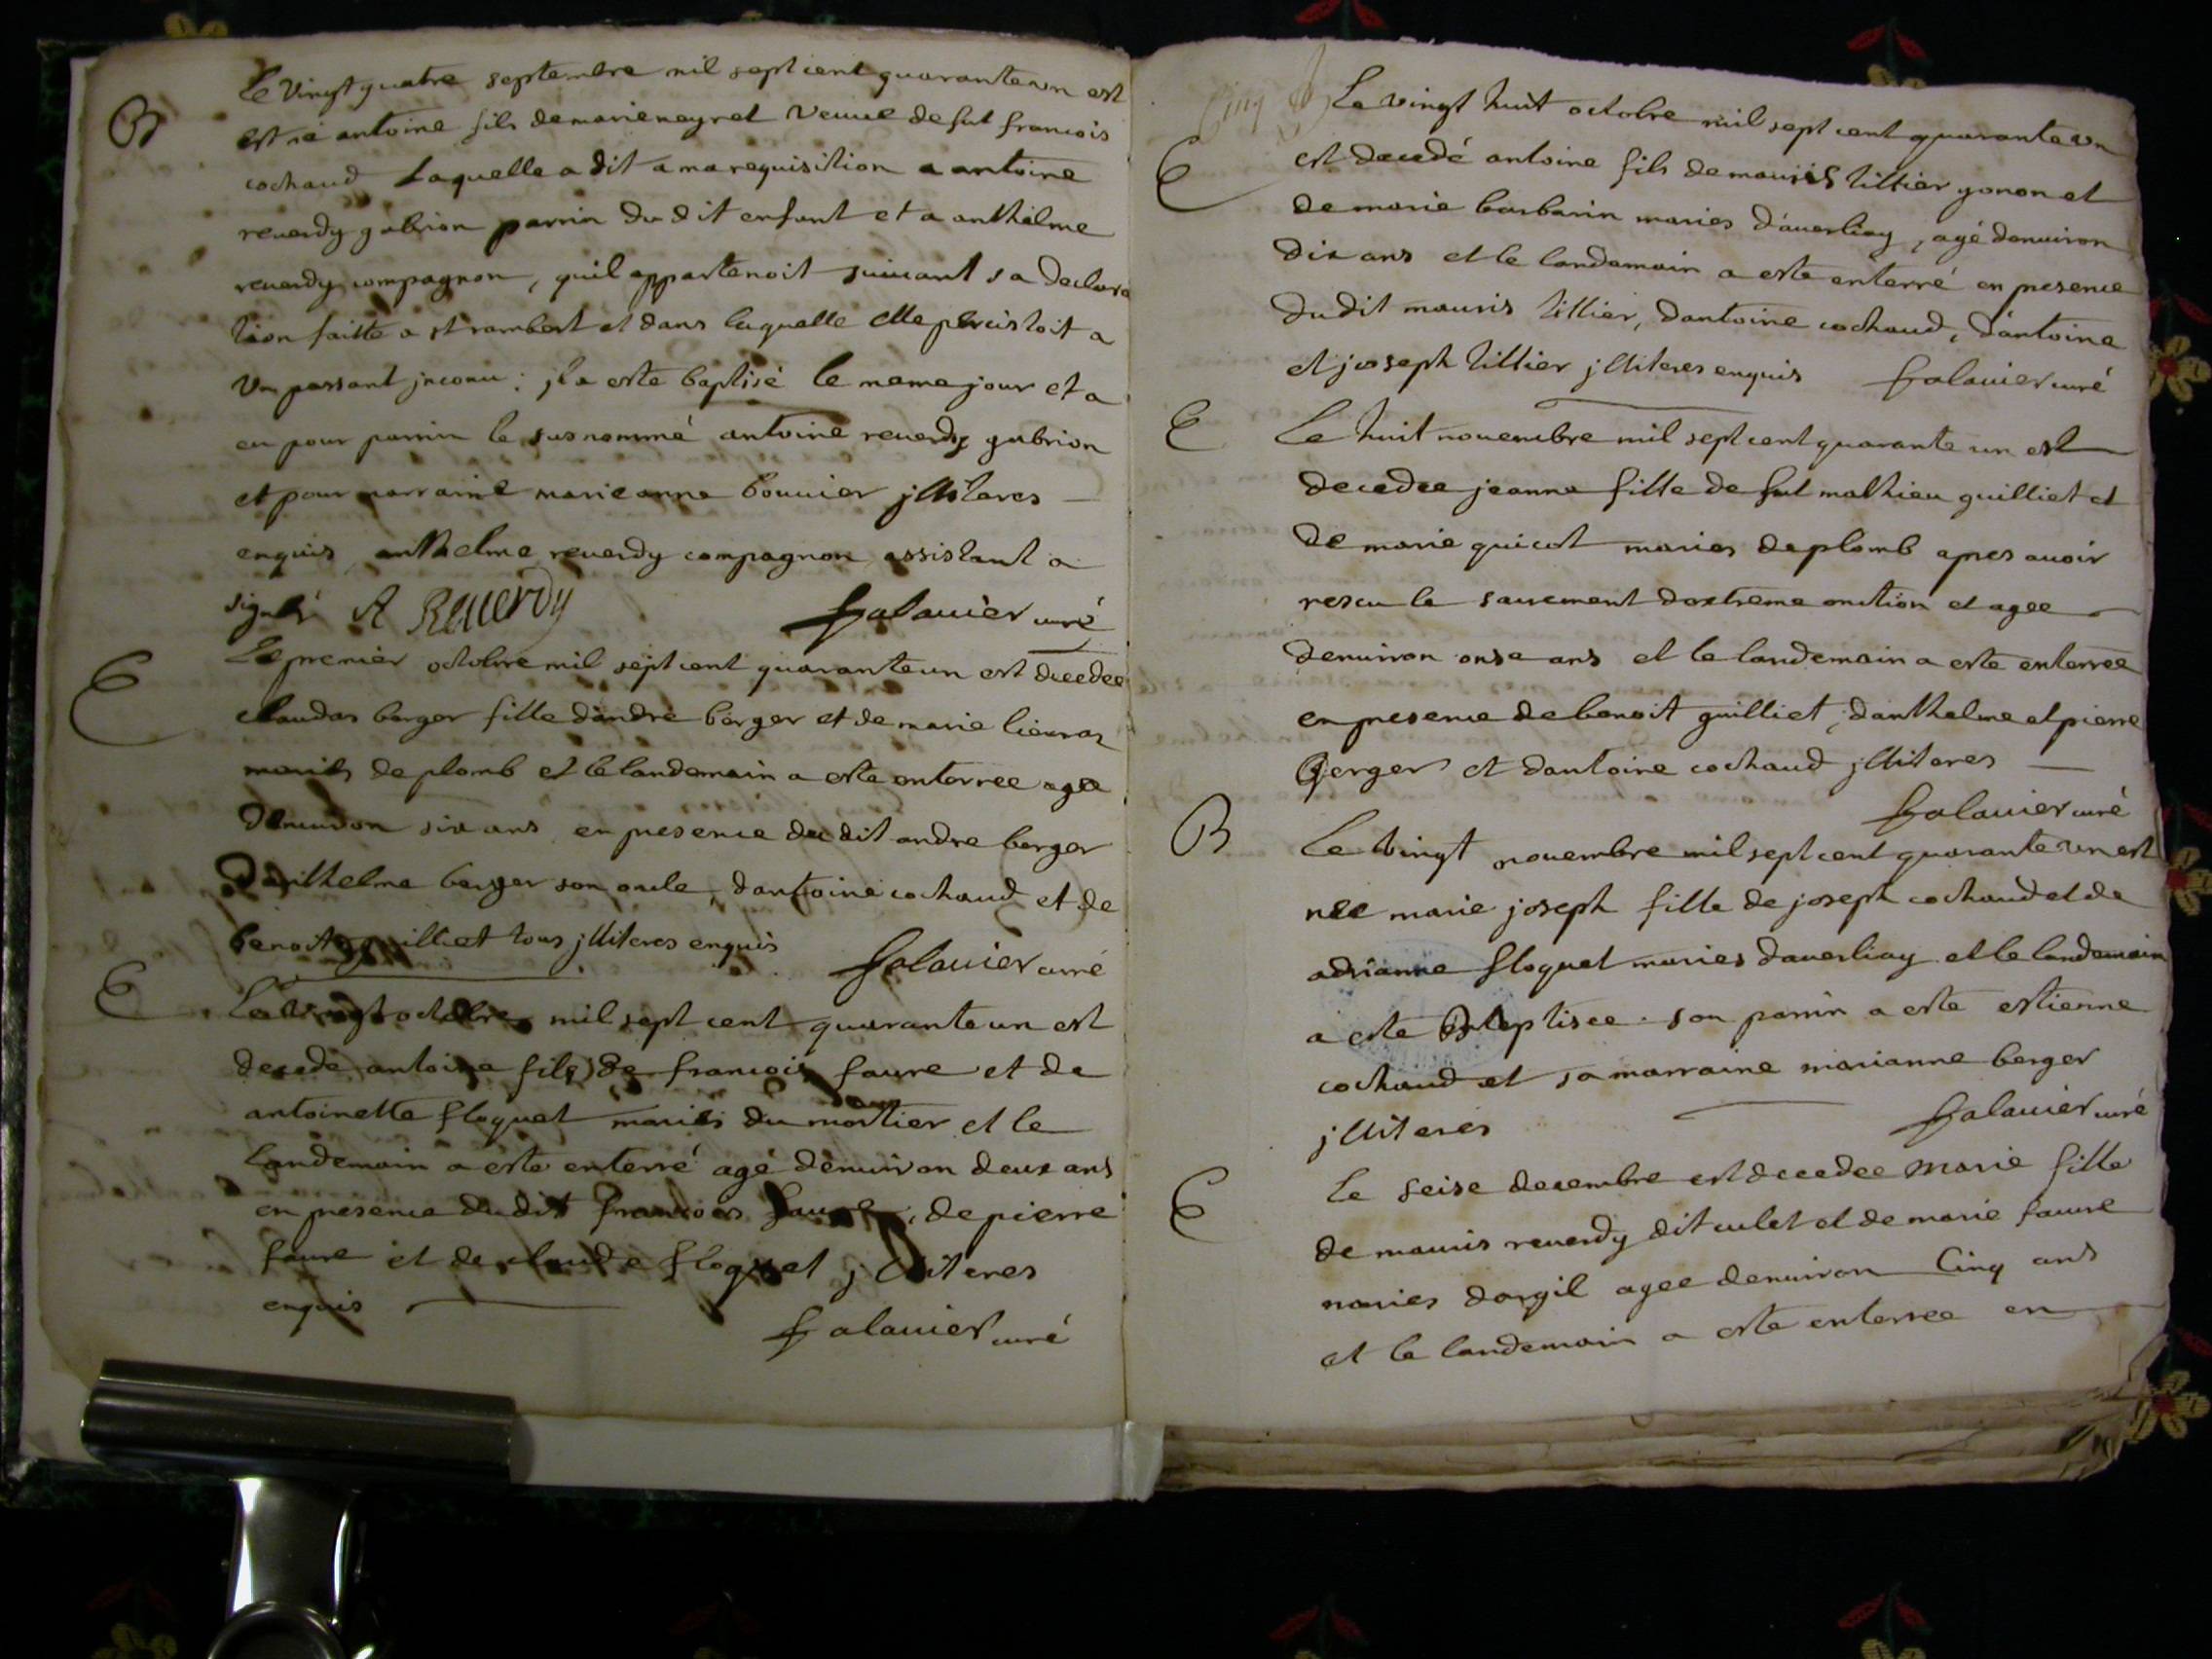 B
Le vingt quatre septembre mil sept cent quarante un est
est né antoine fils de marie neyret veuve de fut francois
cochaud laquelle a dit a ma requisition a antoine
reverdy gabrion parrin du dit enfant et a anthelme
reverdy compagnon, quil appartenoit suivant sa declara
tion faitte a st rambert et dans laquelle elle persistoit a
un passant jnconu ; jl a esté baptisé le meme jour et a
eu pour parrin le susnommé antoine reverdy gabrion
et pour marraine marieanne bouvier jlliteres
enquis anthelme reverdy compagnon assistant a
signé A Reuerdy falavier curé
E
Le premier octobre mil sept cent quarante un est decedee
claudas berger fille d'andré berger et de marie
mariés de plomb et le landemain a esté enterree agee
denviron six ans en presence du dit andre berger
danthelme berger son oncle, dantoine cochaud et de
benoit guilliet tous jlliteres enquis falavier curé
E
Le vingt octobre mil sept cent quarante un est
decede antoine fils de francois favre et de
antoinette floquet mariés du mortier et le
landemain a esté enterré agé denviron deux ans
en presence du dit francois favre, de pierre
favre et de claude floquet jlliteres
enquis
falavier curé
Cinq
E
Le vingt huit octobre mil sept cent quarante un
est decedé antoine fils de mauris tillier gonon et
de marie barbarin maries d'averliay, agé denviron
dix ans et le landemain a esté enterré en presence
du dit mauris tillier, dantoine cochaud, d'antoine
et joseph tillier jlliteres enquis falavier curé
E
Le huit novembre mil sept cent quarante un est
decedee jeanne fille de fut mathieu guilliet et
de marie quicot maries de plomb apres avoir
rescu le sacrement dextreme onction et agee
denviron onse ans et le landemain a esté enterree
en presence de benoit guilliet, danthelme et pierre
berger et dantoine cochaud jlliteres
falavier curé
B
Le vingt novembre mil sept cent quarante un est
nee marie joseph fille de joseph cochaud et de
adrianne floquet maries daverliay et le landemain
a esté Baptisee. son parrin a esté estienne
cochaud et sa marraine marianne berger
jlliteres falavier curé
E
Le seise decembre est decedee marie fille
de mauris reverdy dit culet et de marie favre
maries dorgil agee denviron Cinq ans
et le landemain a esté enterree en